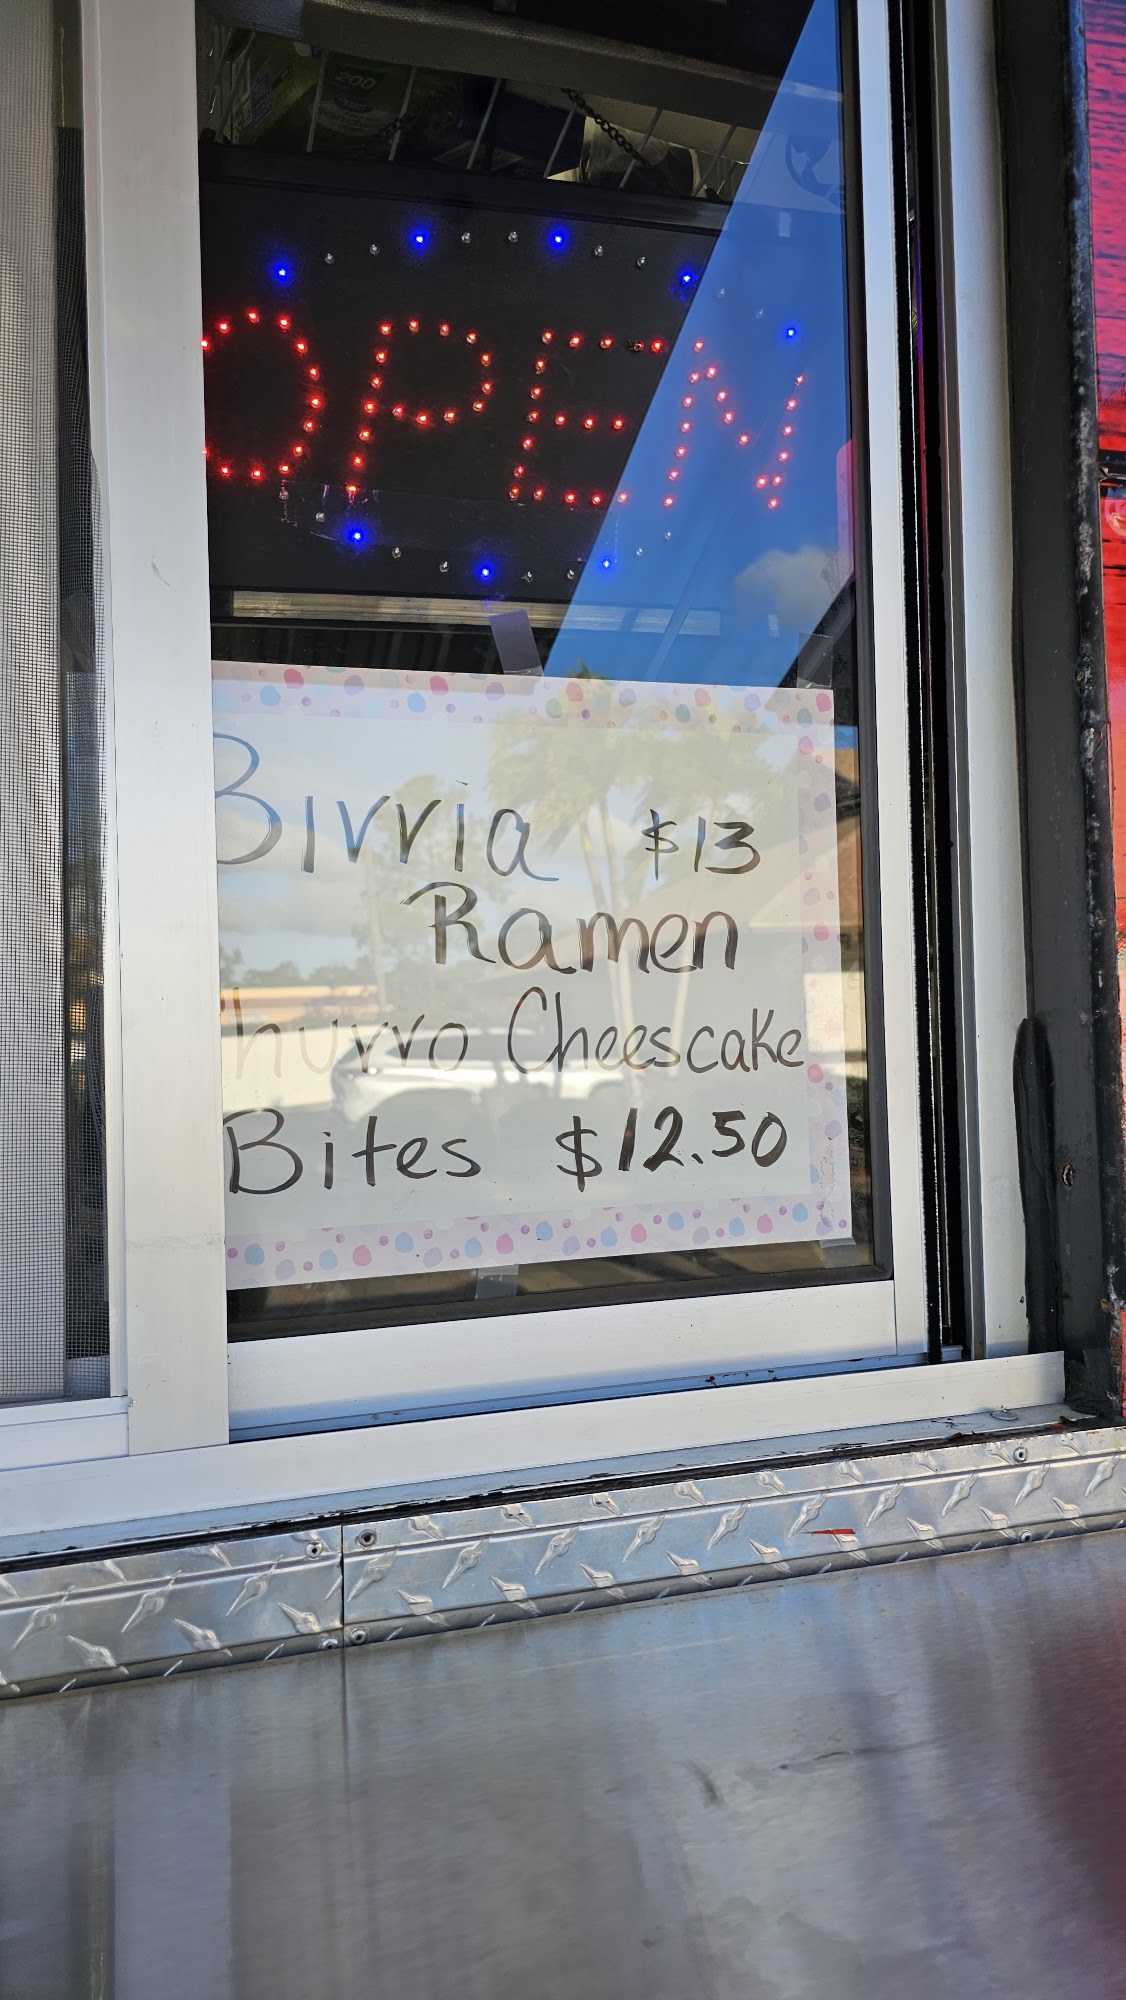 200
OPEN
Birria $13
Ramen
hurro Cheescake
Bites $12.50